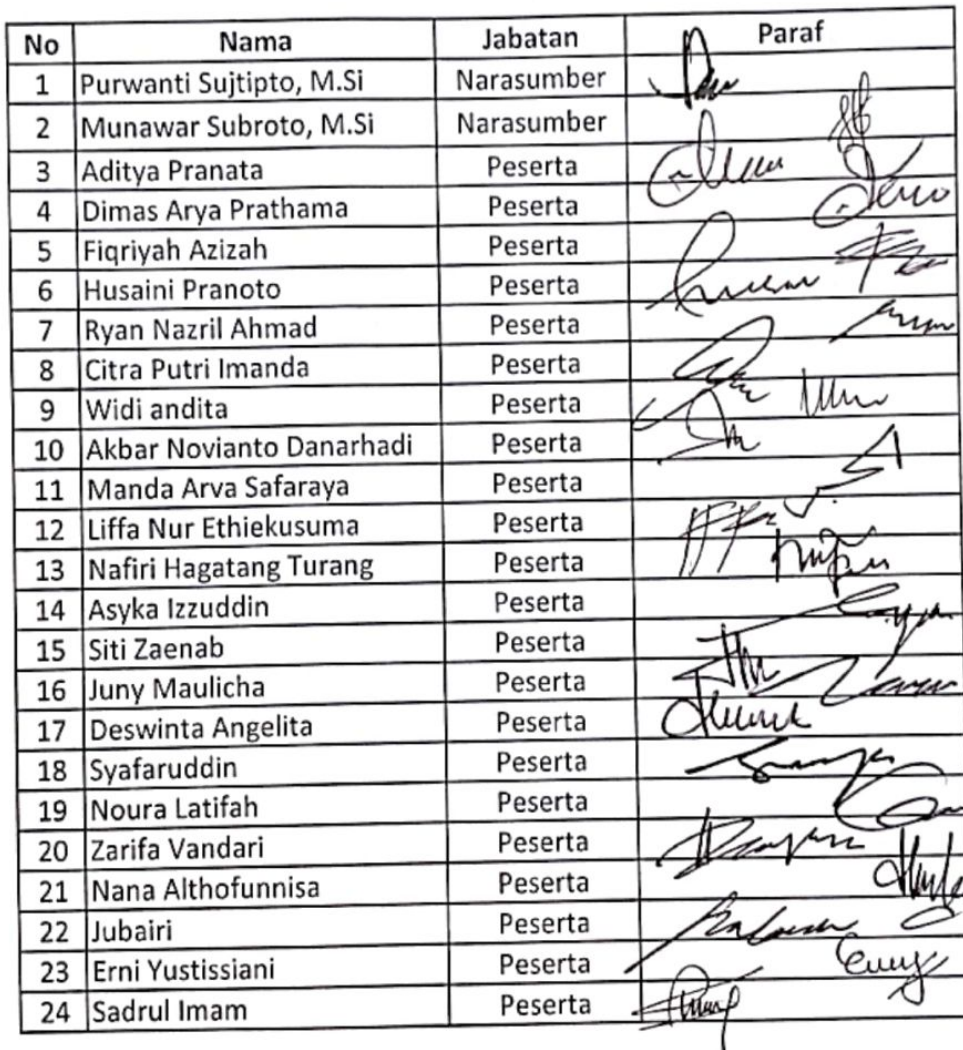 No Nama Jabatan Paraf
1 Purwanti Sujtipto, M.Si Narasumber
2 Munawar Subroto, M.Si Narasumber
3 Aditya Pranata Peserta
4 Dimas Arya Prathama Peserta
5 Fiqriyah Azizah Peserta
6 Husaini Pranoto Peserta
7 Ryan Nazril Ahmad Peserta
8 Citra Putri Imanda Peserta
9 Widi andita Peserta
10 Akbar Novianto Danarhadi Peserta
11 Manda Arva Safaraya Peserta
12 Liffa Nur Ethiekusuma Peserta
13 Nafiri Hagatang Turang Peserta
14 Asyka Izzuddin Peserta
15 Siti Zaenab Peserta
16 Juny Maulicha Peserta
17 Deswinta Angelita Peserta
18 Syafaruddin Peserta
19 Noura Latifah Peserta
20 Zarifa Vandari Peserta
21 Nana Althofunnisa Peserta
22 Jubairi Peserta
23 Erni Yustissiani Peserta
24 Sadrul Imam Peserta